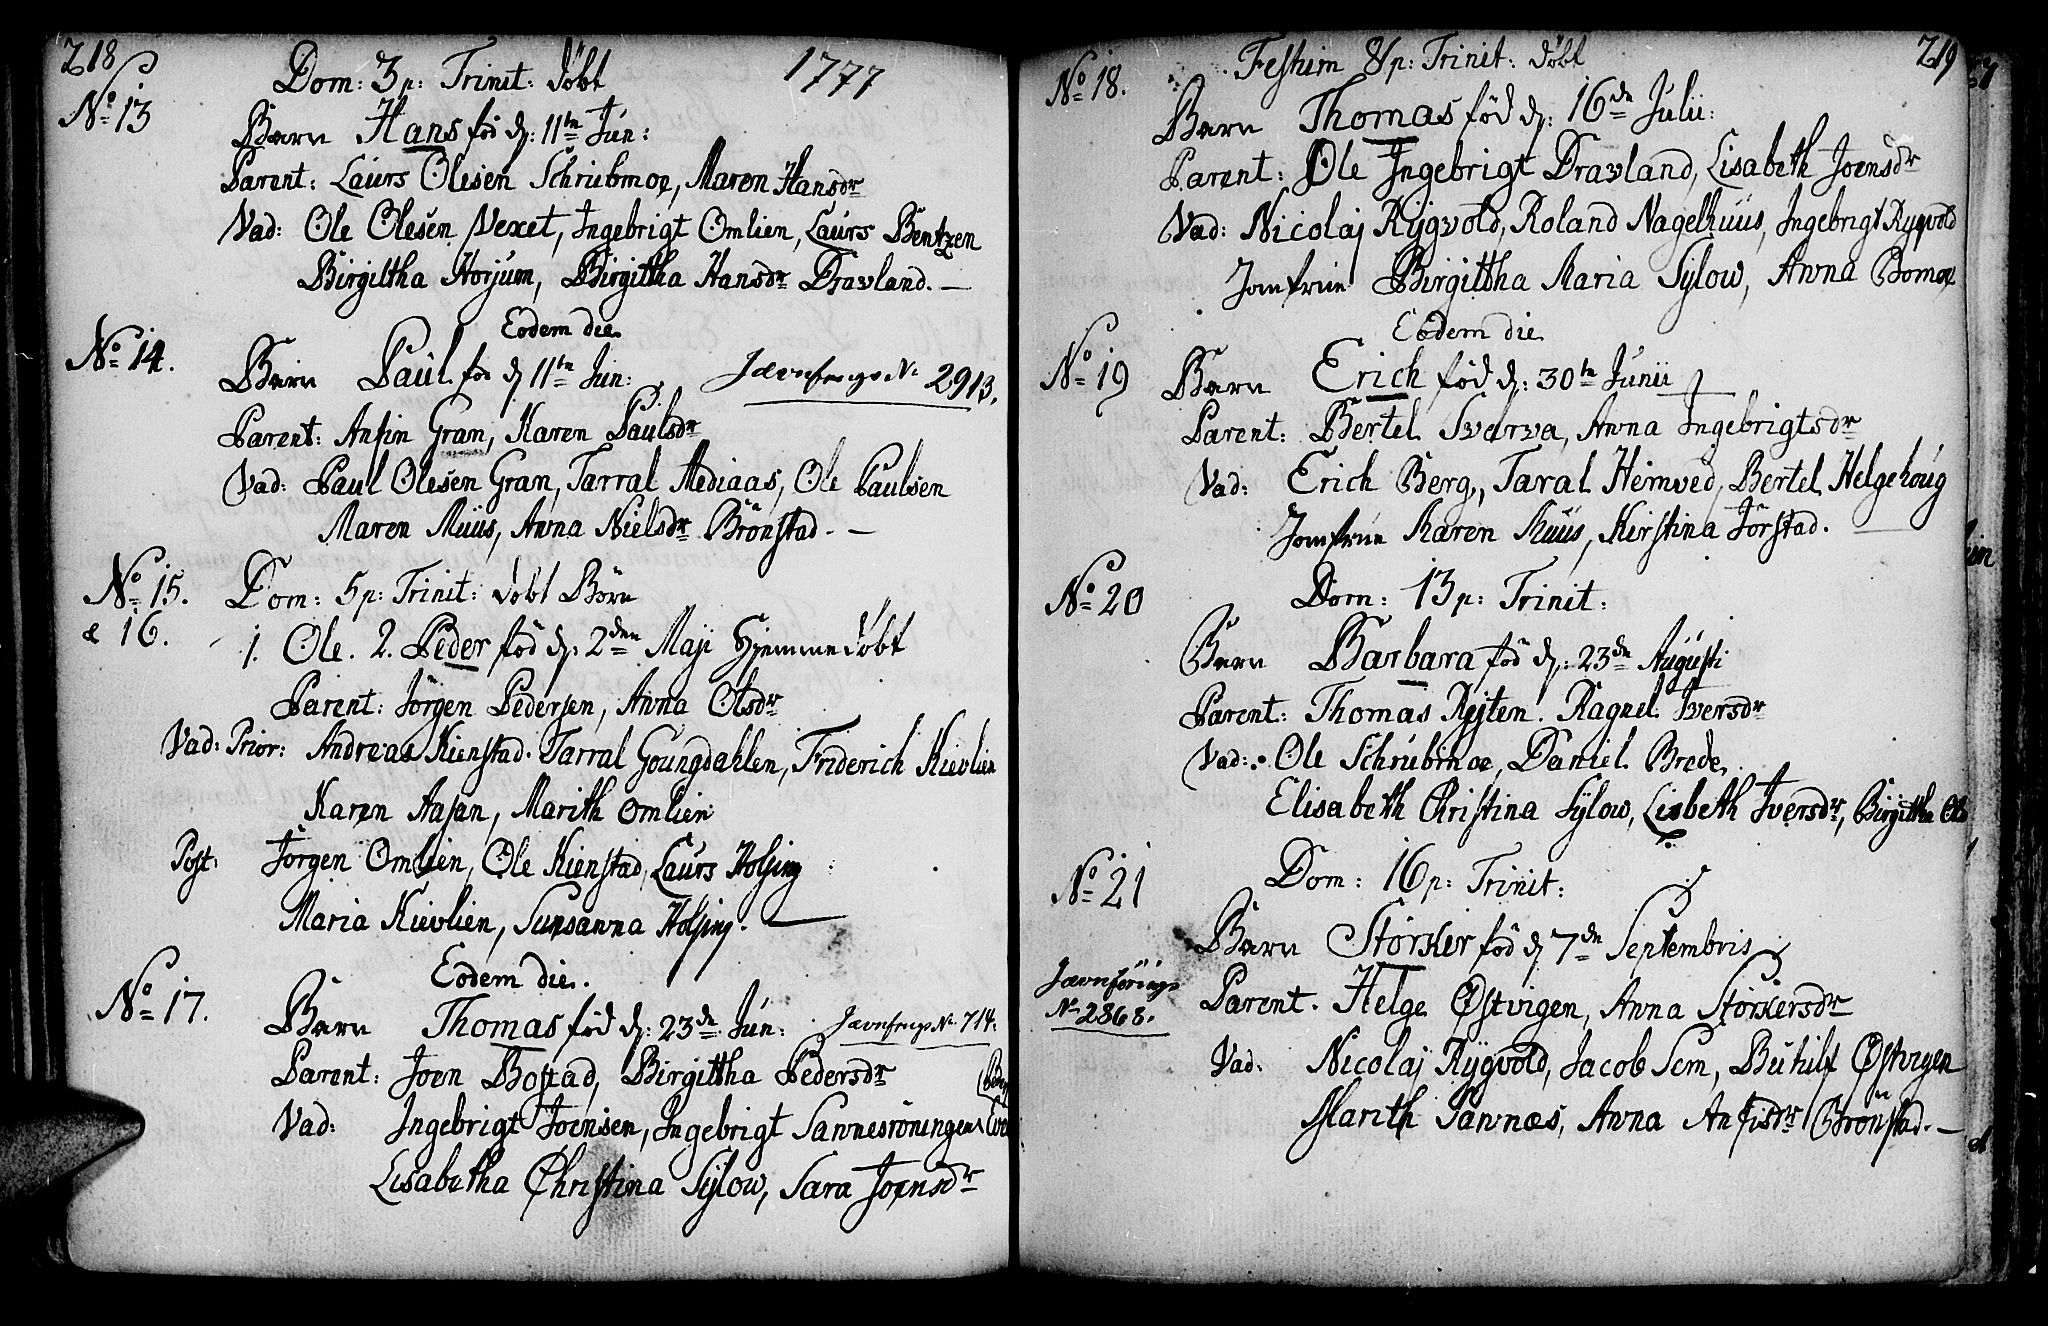 218
Dom: 3 p: Trinit: döbt 1777
No 13
Barn Hans föd d: 11te Jun:
Parent: Laurs Olesen Schrubmoe, Maren Hansdr
Vad: Ole Olesen Vexet, Ingebrigt Omlien, Laurs Bentzen
Birgittha Horjum, Birgittha Hansdr Dravland. —
Eodem die
No 14.
Barn Paul föd d 11te Jun: Jævnfrings No 2913.
Parent: Anfin Gram, Karen Paulsdr
Vad: Paul Olesen Gram, Tarral Mediaas, Ole Paulsen
Maren Muus, Anna Nielsdr Brönstad. —
No 15. Dom: 5 p: Trinit: döbt Börn
& 16. 1. Ole. 2. Peder föd d: 2den Maji Hjemmedöbt
Parent: Jörgen Pedersen, Anna Olsdr
Vad: Prior: Andreas Kienstad. Tarral Goungdahlen, Friderich Kievlien
Karen Aasan, Marith Omlien
Post: Jörgen Omlien, Ole Kienstad, Laurs Holsing
Maria Kievlien, Sunsanna Holsing. —
Eodem die.
No 17.
Barn Thomas föd d: 23de Jun: Jævnfrings No 714.
Parent: Joen Bostad, Birgittha Pedersdr
Vad: Ingebrigt Joensen, Ingebrigt Sannesröningen
Lisabetha Christina Sylow, Sara Joensdr
219
No 18. Festum 8 p: Trinit: döbt
Barn Thomas föd d: 16de Julii:
Parent: Ole Ingebrigt Dravland, Lisabeth Joensdr
Vad: Nicolaj Rygvold, Roland Nagelhuus, Ingebrigt Rygvold
Jomfrue Birgittha Maria Sylow, Anna Bomoe
Eodem die
No 19
Barn Erich föd d: 30te Junii
Parent: Bertel Svarva, Anna Ingebrigtsdr
Vad: Erich Berg, Taral Hemved, Bertel Helgehoug
Jomfrue Karen Muus, Kirstina Jörstad.
No 20 Dom: 13 p: Trinit:
Barn Barbara föd d: 23de Augusti
Parent: Thomas Rejten. Ragnel Iversdr
Vad: Ole Schrubmoe, Daniel Brede
Elisabeth Christina Sylow, Lisbeth Iversdr, Birgitha Ols
Dom: 16 p: Trinit:
No 21
Barn Störker föd d 7de Septembris
Jævnförings
No 2868.
Parent. Helge Østvigen, Anna Störkersdr
Vad: Nicolaj Rygvold, Jacob Sem, Buhilf Østvigen
Marith Sannæs, Anna Anfisdr Brönstad. —